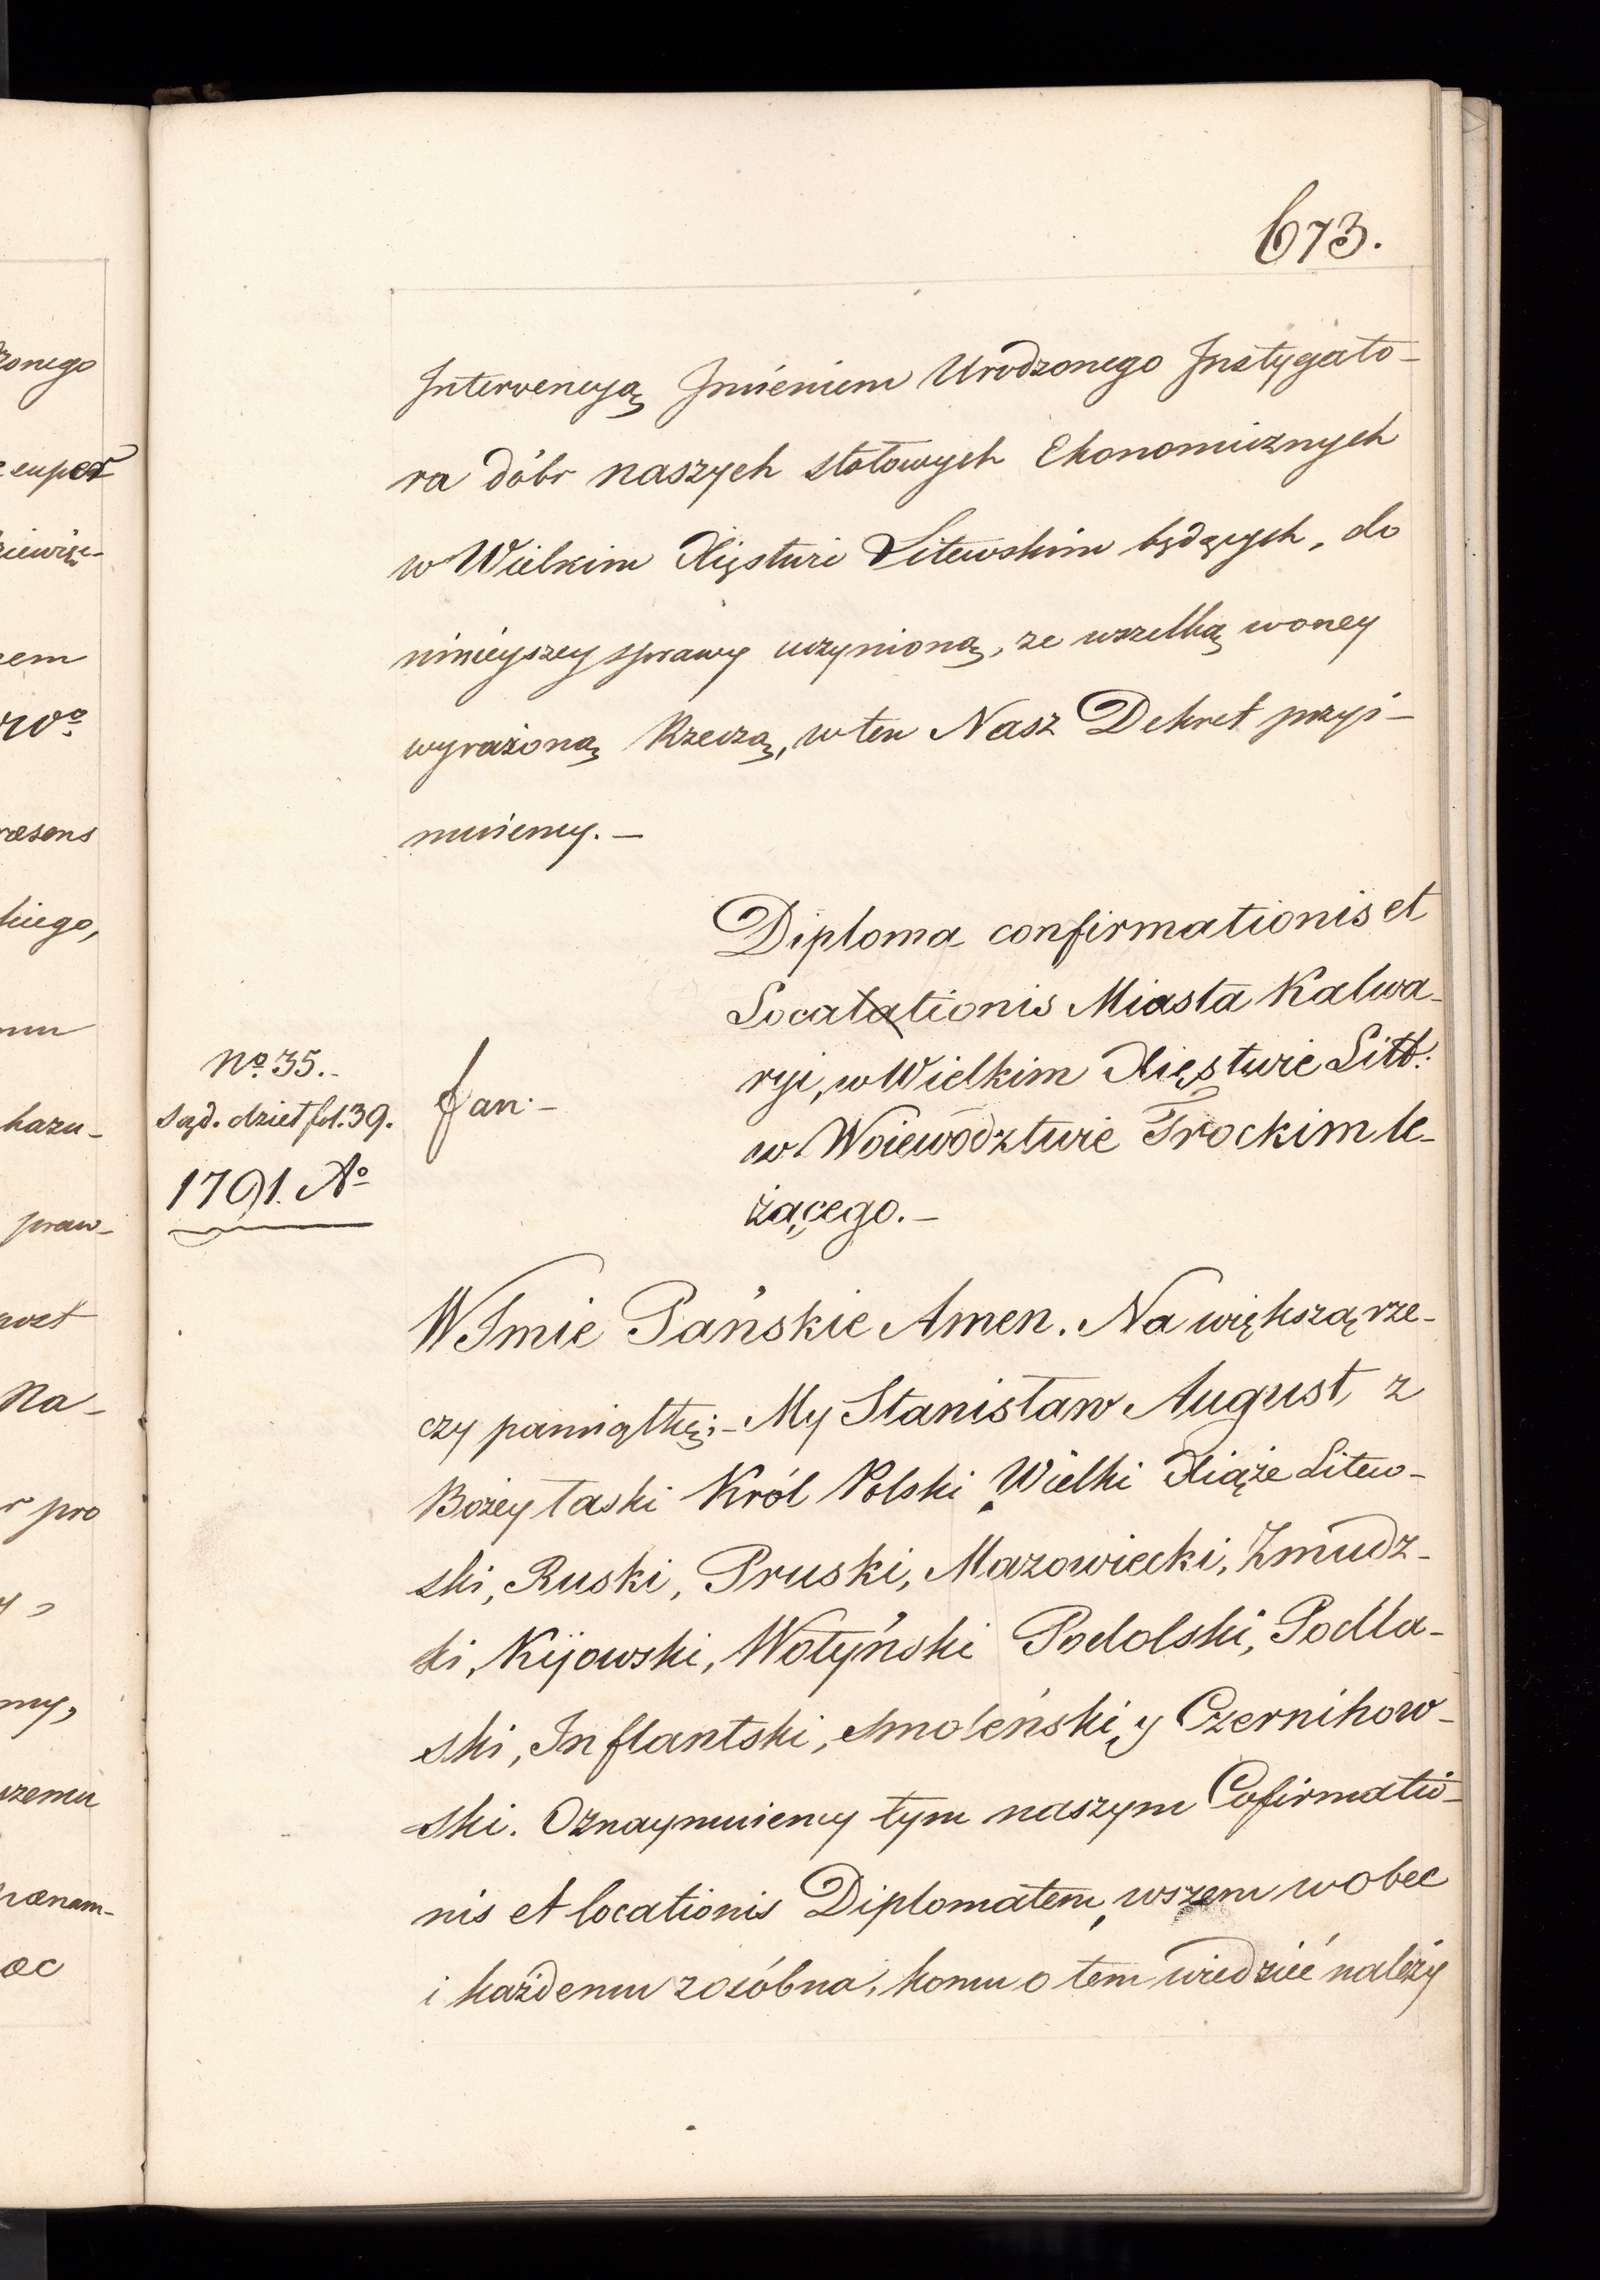 673.
Intervencyą Jmieniem Urodzonego Jnstygato-
ra dóbr naszych stołowych Ekonomicznych
w Wielkim Xięstwie Litewskim będących, do
ninieyszey sprawy uczynioną, ze wszelką w oney
wyrażoną Rzeczą, w ten Nasz Dekret przyi-
muiemy. —
Diploma confirmationis et
Locatationis Miasta Kalwa-
ryi, w Wielkim Xięstwie Litt:
w Woiewodztwie Trockim le-
żącego. —
No 35. -
Sąd. dzieł fol. 39.
1791. Ao
Jan. -
W Jmie Pańskie Amen. Na większą rze-
czy pamiątkę; - My Stanisław August z
Bożey łaski Król Polski, Wielki Xiąże Litew-
ski, Ruski, Pruski, Mazowiecki, Zmudz-
ki, Kijowski, Wołyński Podolski, Podla-
ski, Inflantski, Smoleński, y Czernihow-
ski. Oznaymuiemy tym naszym Cofirmatio-
nis et locationis Diplomatem, wszem wobec
i każdemu zosóbna, komu o tem wiedzieć należy
zonego
super
rem
rwo
kiego,
kazu-
praw-
Na-
r pro
my,
szemu
ac